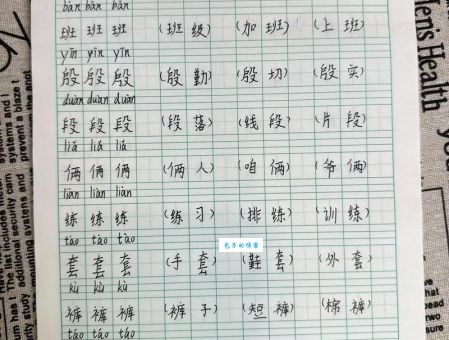 bān bān bān
班 班 班 (班级) (加班) (上班)
yīn yīn yīn
殷 殷 殷 (殷勤) (殷切) (殷实)
duàn duàn duàn
段 段 段 (段落) (线段) (片段)
liǎ liǎ liǎ
俩 俩 俩 (俩人) (咱俩) (爷俩)
liàn liàn liàn
练 练 练 (练习) (排练) (训练)
tào tào tào
套 套 套 (手套) (鞋套) (外套)
kù kù kù
裤 裤 裤 (裤子) (短裤) (棉裤)
táo táo táo
len's Health